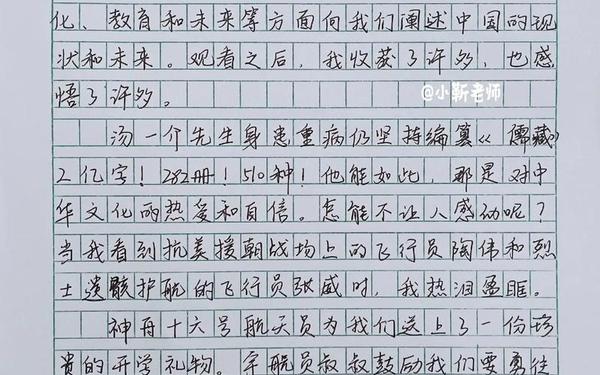 化、教育和未来等方面向我们阐述中国的现
状和未来。观看之后，我收获了许多，也感
悟了许多。
@小靳老师
汤一个先生身患重病仍坚持编篡《儒藏》
2亿字！282册！510种！他能如此，那是对中
华文化的热爱和自信。怎能不让人感动呢？
当我看到抗美援朝战场上的飞行员陶伟和烈
士遗骸护航的飞行员张威时，我热泪盈眶。
神舟十六号航天员为我们送上了一份珍
贵的开学礼物。宇航员叔叔鼓励我们要勇往